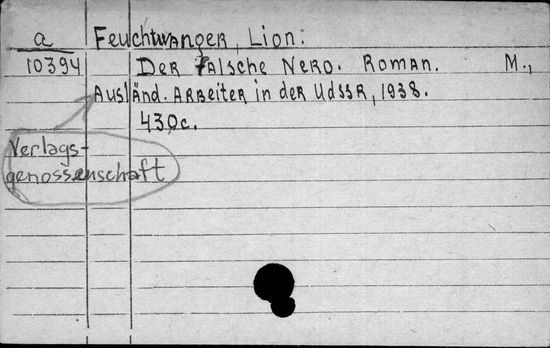 a Feuchtwanger, Lion.
10394 Der falsche Nero. Roman. M.,
Ausländ. Arbeiter in der UdSSR, 1938.
430c.
Verlags-
genossenschaft